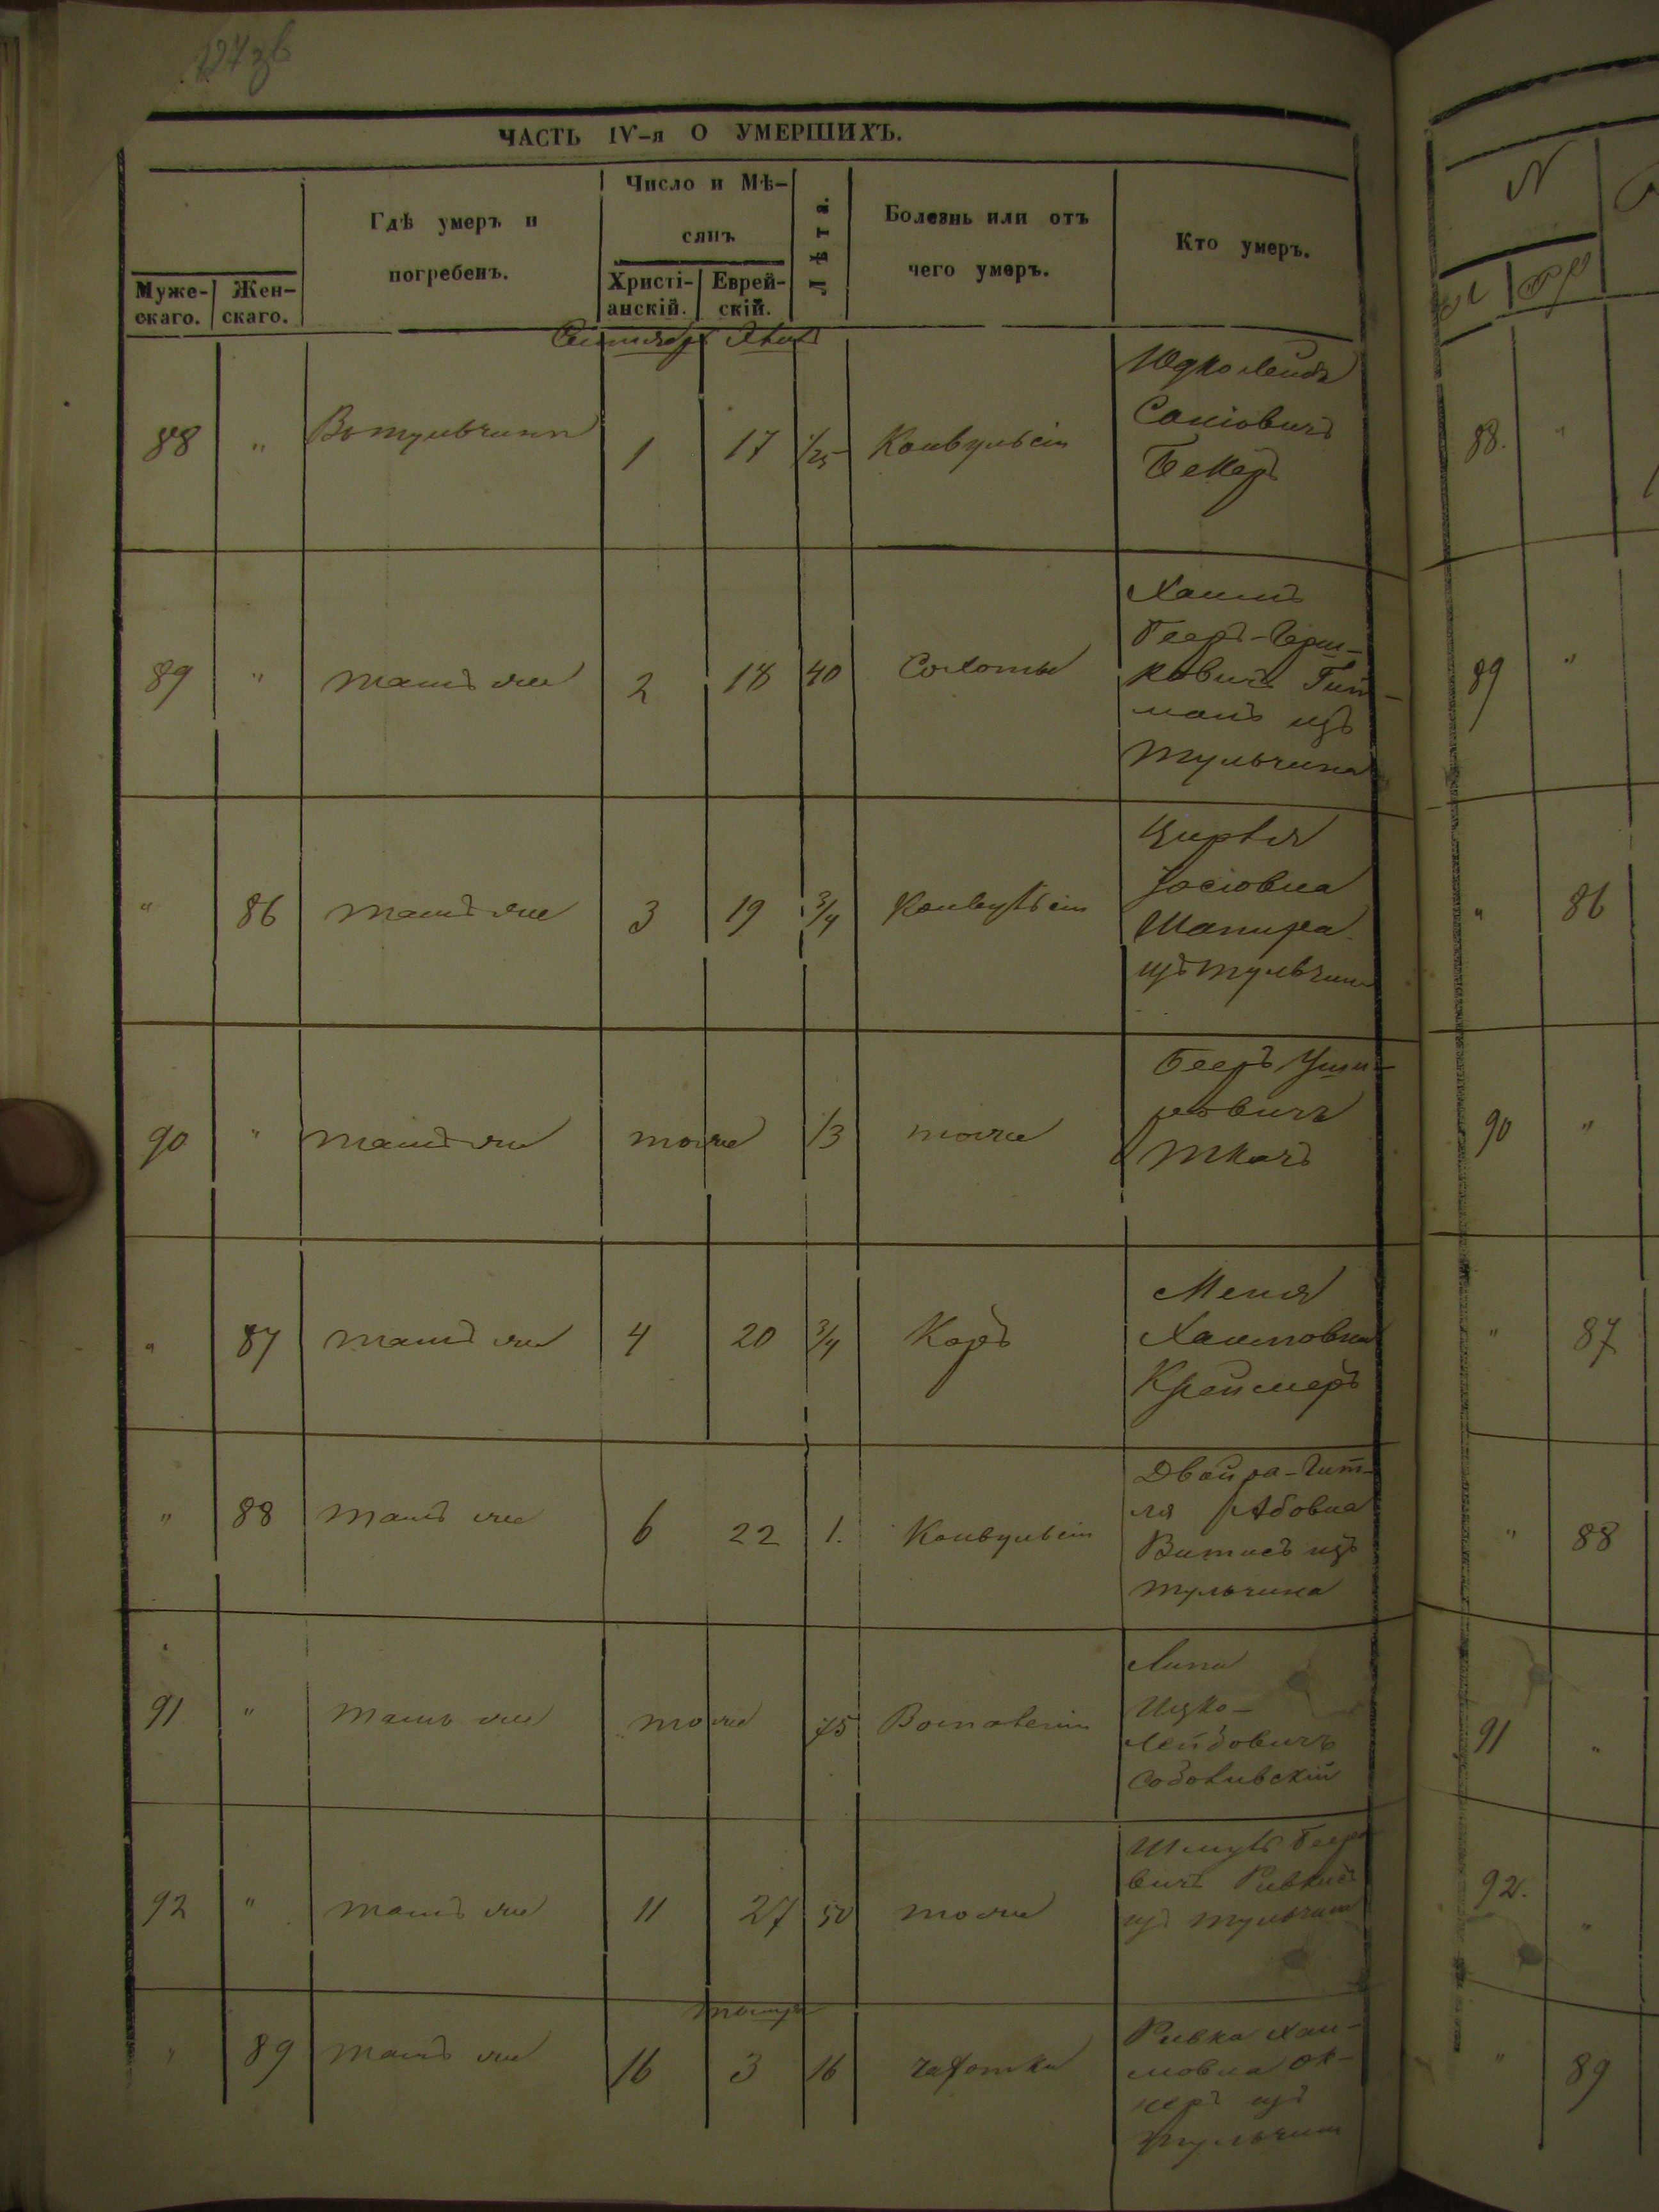 127 зв
ЧАСТЬ IV-я О УМЕРШИХЪ.
Муже-
скаго.
Жен-
скаго.
Гдѣ умеръ и
погребенъ.
Число и Мѣ-
сяцъ
Христі-
анскій.
Еврей-
скій.
Лѣта.
Болезнь или отъ
чего умеръ.
Кто умеръ.
Сентября
88 " Вътульчинѣ 1 17 1/25 Конвульсіи
Юдко Лейба
Беперъ
89 " тамъ же 2 18 40
Хаимъ
Бееръ-Герш-
ковичъ Гит-
манъ изъ
тульчина
" 86 тамъ же 3 19 3/4 Конвульсіи
Цирля
Іосіовна
Шапира
изъ тульчина
90 " тамъ же тоже 1/3 тоже
Бееръ Уши-
ровичъ
Ткачъ
" 87 тамъ же 4 20 3/4 Корь
Меня
Хаимовна
Креймеръ
" 88 тамъ же 6 22 1. Конвульсіи
Двойра-Гит-
ля Абовна
изъ
тульчина
91 " тамъ же тоже 75 Воспаленіи
Липа
Ицко-
Лейбовичъ
92 " тамъ же 11 27 50 тоже
Шмуль Бееро
вичъ Ривкисъ
изъ тульчина
" 89 тамъ же 16 3 16 чахотки
Ривка Хаи-
мовна Ок-
неръ изъ
тульчина
88. "
89 "
" 86
90 "
" 87
" 88
91 "
92. "
" 89